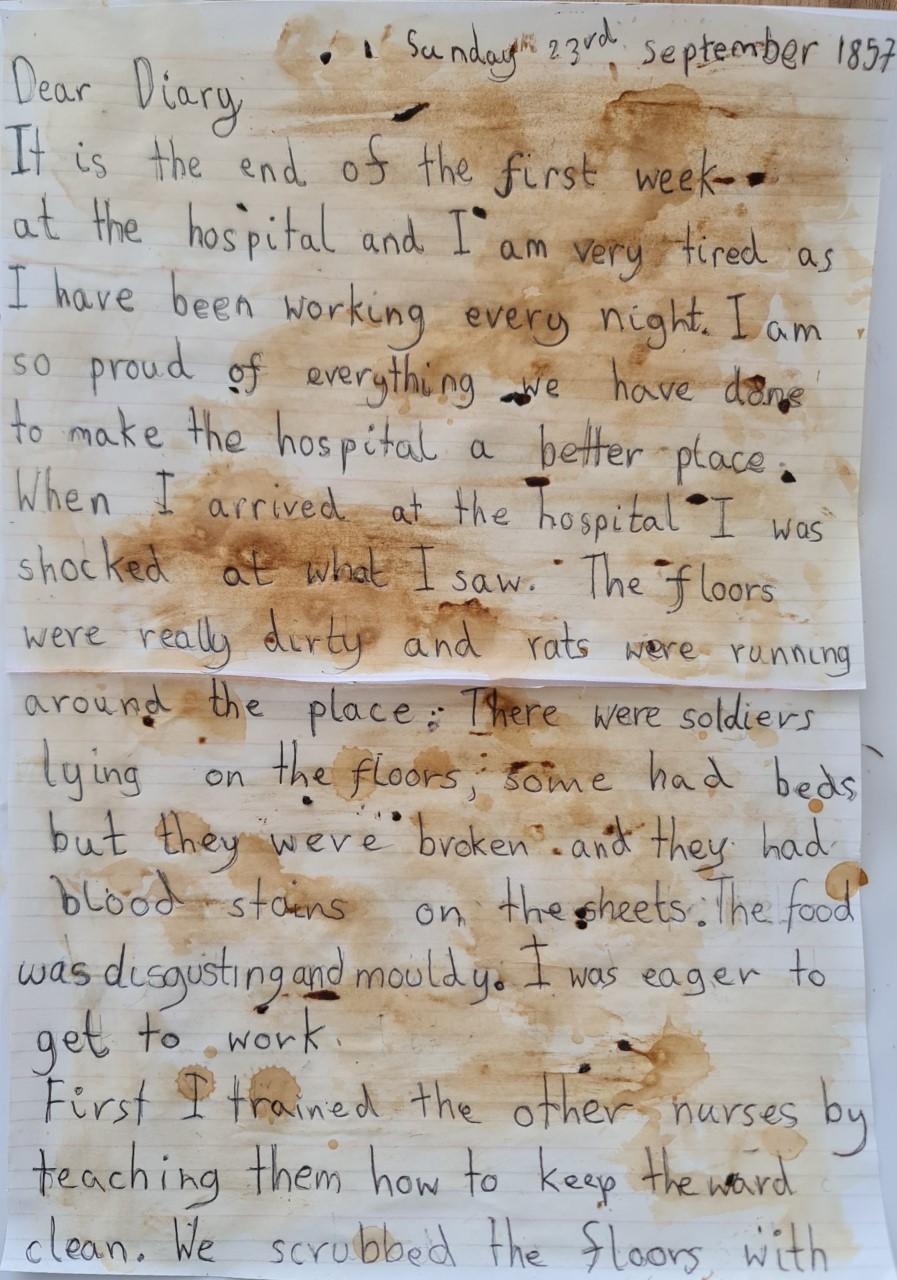 Sunday 23rd september 1857
Dear Diary
It is the end of the first week
at the hospital and I am very tired as
I have been working every night. I am
so proud of everything we have done
to make the hospital a better place.
When I arrived at the hospital I was
shocked at what I saw. The floors
were really dirty and rats were running
around the place. There were soldiers
lying on the floors, some had beds
but they were broken and they had
blood stains on the sheets. The food
was disgusting and mouldy. I was eager to
get to work.
First I trained the other nurses by
teaching them how to keep the ward
clean. We scrubbed the floors with